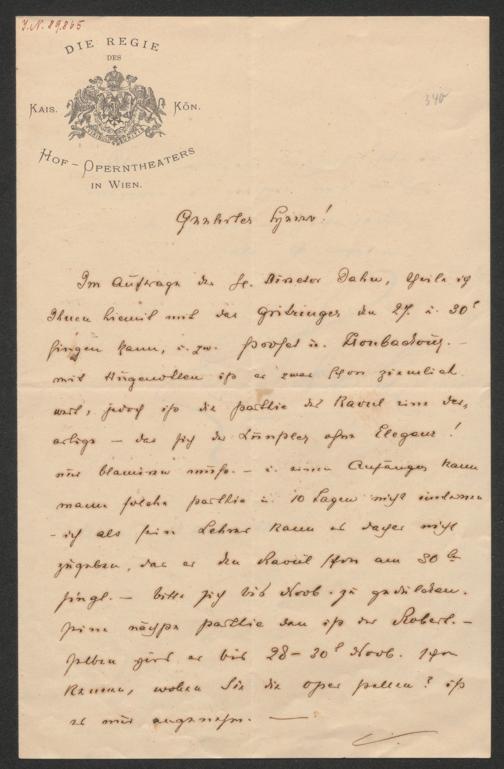 J.N. 89.865
DIE REGIE
DES
KAIS. KÖN.
HOF-OPERNTHEATERS
IN WIEN.
340
Geehrter Herr!
Im Auftrage des H. Director Jahn, theile ich
Ihnen hiemit mit das Grüninger den 27. u. 30t
singen kann, u. zw. Profet u. Troubadour. –
mit Hugenotten ist er zwar schon ziemlich
weit, jedoch ist die parthie des Raoul eine der,
artige – das sich der Künstler ohne Eleganz!
nur blamiren muß. – u. einen Anfänger kann
mann solche parthie in 10 Tagen nicht
– ich als sein Lehrer kann es daher nicht
zugeben, das er den Raoul schon am 30te
singt. – bitte sich bis Novb. zu gedulden.
seine nächste parthie dan ist der Robert. –
selben wird er bis 28–30t Novb. schon
können, wollen Sie die oper stellen? ist
es mir angenehm. —